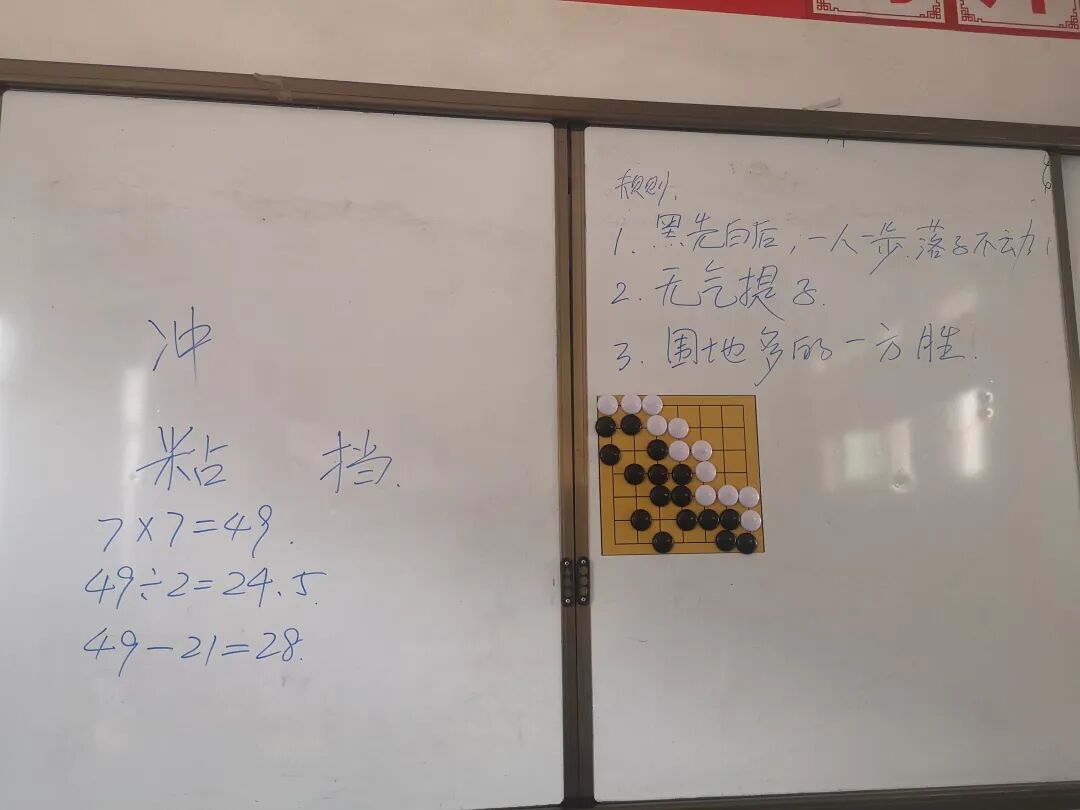 冲
粘 挡.
7×7=49.
49÷2=24.5.
49-21=28.
规则.
1. 黑先白后,一人一步.落子不动
2. 无气提子.
3. 围地多的一方胜.